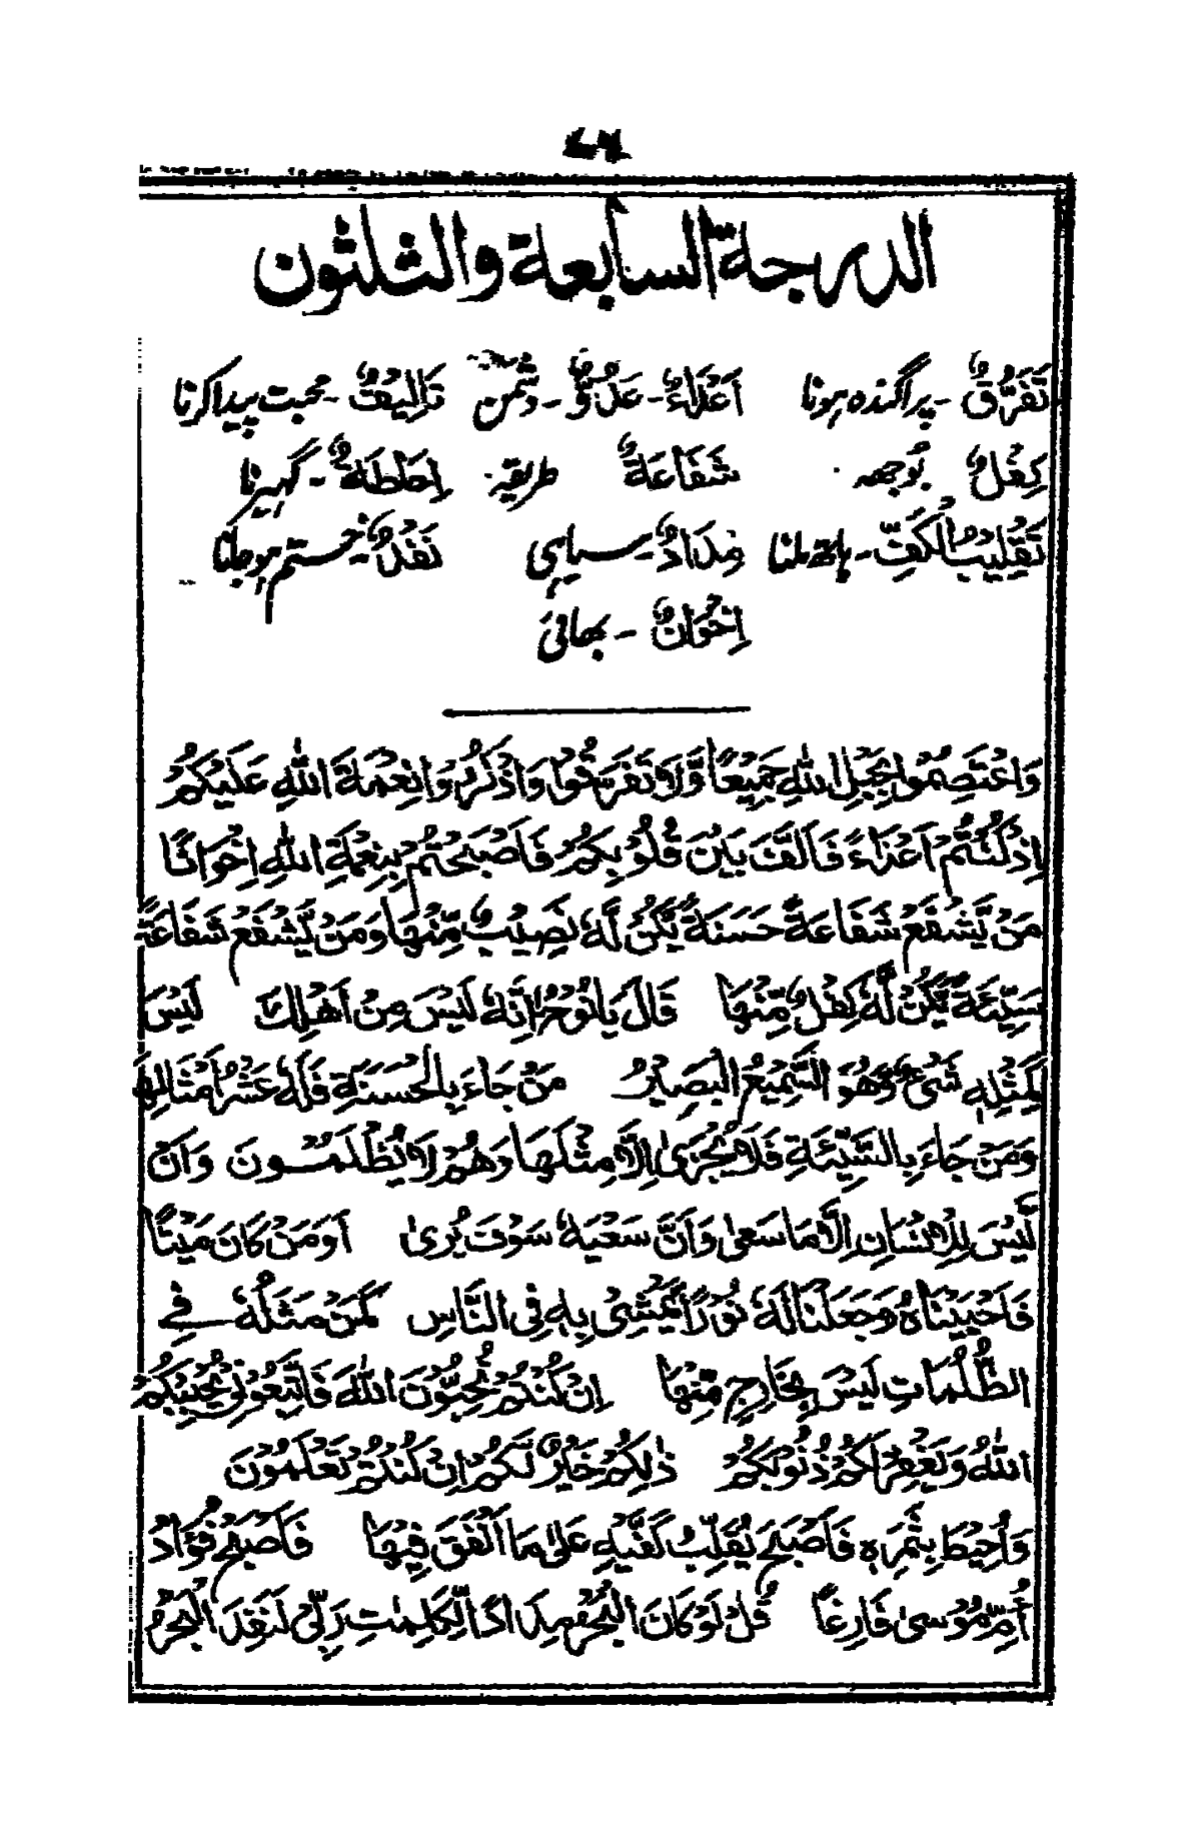 الدرجة السابعة والثلثون
تَفَرُّقٌ - پراگندہ ہونا اَعْدَاءٌ - عَدُوٌّ - دشمن تَالِيْفٌ - محبت پیدا کرنا
كِفْلٌ بوجھ شَفَاعَةٌ طریقہ اِحَاطَةٌ - گھیرنا
تَقْلِيْبُ الْكَفِّ - ہاتھ ملنا مِدَادٌ - سیاہی نَفْدٌ - ختم ہوجانا
اِخْوَانٌ - بھائی
وَاعْتَصِمُوْا بِحَبْلِ اللّٰهِ جَمِيْعًا وَّلَا تَفَرَّقُوْا وَاذْكُرُوْا نِعْمَةَ اللّٰهِ عَلَيْكُمْ
اِذْ كُنْتُمْ اَعْدَاءً فَاَلَّفَ بَيْنَ قُلُوْبِكُمْ فَاَصْبَحْتُمْ بِنِعْمَةِ اللّٰهِ اِخْوَانًا
مَنْ يَّشْفَعْ شَفَاعَةً حَسَنَةً يَّكُنْ لَّهٗ نَصِيْبٌ مِّنْهَا وَمَنْ يَّشْفَعْ شَفَاعَةً
سَيِّئَةً يَّكُنْ لَّهٗ كِفْلٌ مِّنْهَا قَالَ يَانُوْحُ اِنَّهٗ لَيْسَ مِنْ اَهْلِكَ لَيْسَ
كَمِثْلِهٖ شَیْءٌ وَّهُوَ السَّمِيْعُ الْبَصِيْرُ مَنْ جَاءَ بِالْحَسَنَةِ فَلَهٗ عَشْرُ اَمْثَالِهَا
وَمَنْ جَاءَ بِالسَّيِّئَةِ فَلَا يُجْزٰى اِلَّا مِثْلَهَا وَهُمْ لَا يُظْلَمُوْنَ وَاَنْ
لَّيْسَ لِلْاِنْسَانِ اِلَّا مَا سَعٰى وَاَنَّ سَعْيَهٗ سَوْفَ يُرٰى اَوَمَنْ كَانَ مَيْتًا
فَاَحْيَيْنَاهُ وَجَعَلْنَا لَهٗ نُوْرًا يَّمْشِیْ بِهٖ فِی النَّاسِ كَمَنْ مَثَلُهٗ فِے
الظُّلُمَاتِ لَيْسَ بِخَارِجٍ مِّنْهَا اِنْ كُنْتُمْ تُحِبُّوْنَ اللّٰهَ فَاتَّبِعُوْنِیْ يُحْبِبْكُمُ
اللّٰهُ وَيَغْفِرْ لَكُمْ ذُنُوْبَكُمْ ذٰلِكُمْ خَيْرٌ لَّكُمْ اِنْ كُنْتُمْ تَعْلَمُوْنَ
وَاُحِيْطَ بِثَمَرِهٖ فَاَصْبَحَ يُقَلِّبُ كَفَّيْهِ عَلٰى مَا اَنْفَقَ فِيْهَا فَاَصْبَحَ فُؤَادُ
اُمِّ مُوْسٰى فَارِغًا قُلْ لَوْ كَانَ الْبَحْرُ مِدَادًا لِّكَلِمٰتِ رَبِّیْ لَنَفِدَ الْبَحْرُ